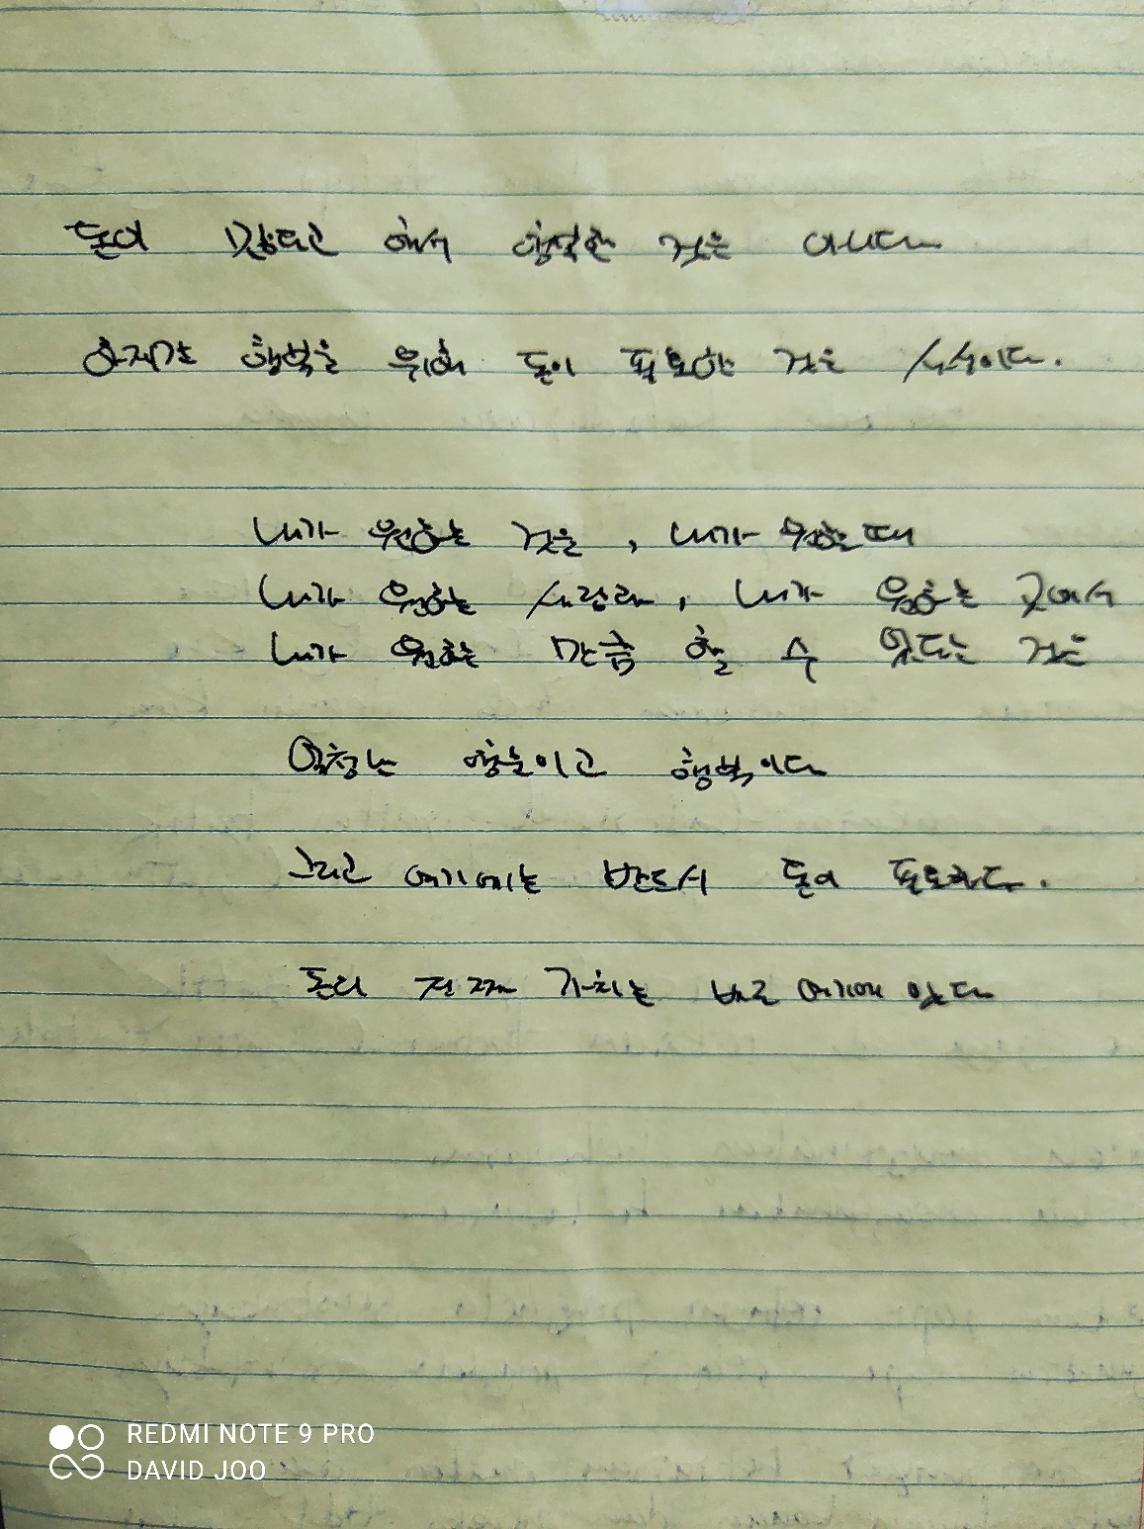 돈이 많다고 해서 행복한 것은 아니다
하지만 행복을 위해 돈이 필요한 것은 사실이다.
내가 원하는 것을, 내가 원하는 때
내가 원하는 사람과, 내가 원하는 곳에서
내가 원하는 만큼 할 수 있다는 것은
엄청난 행운이고 행복이다
그리고 여기에는 반드시 돈이 필요하다.
돈의 진짜 가치는 바로 여기에 있다
REDMI NOTE 9 PRO
DAVID JOO